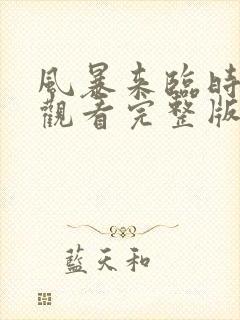 風暴來臨時
觀看完整版
藍天和